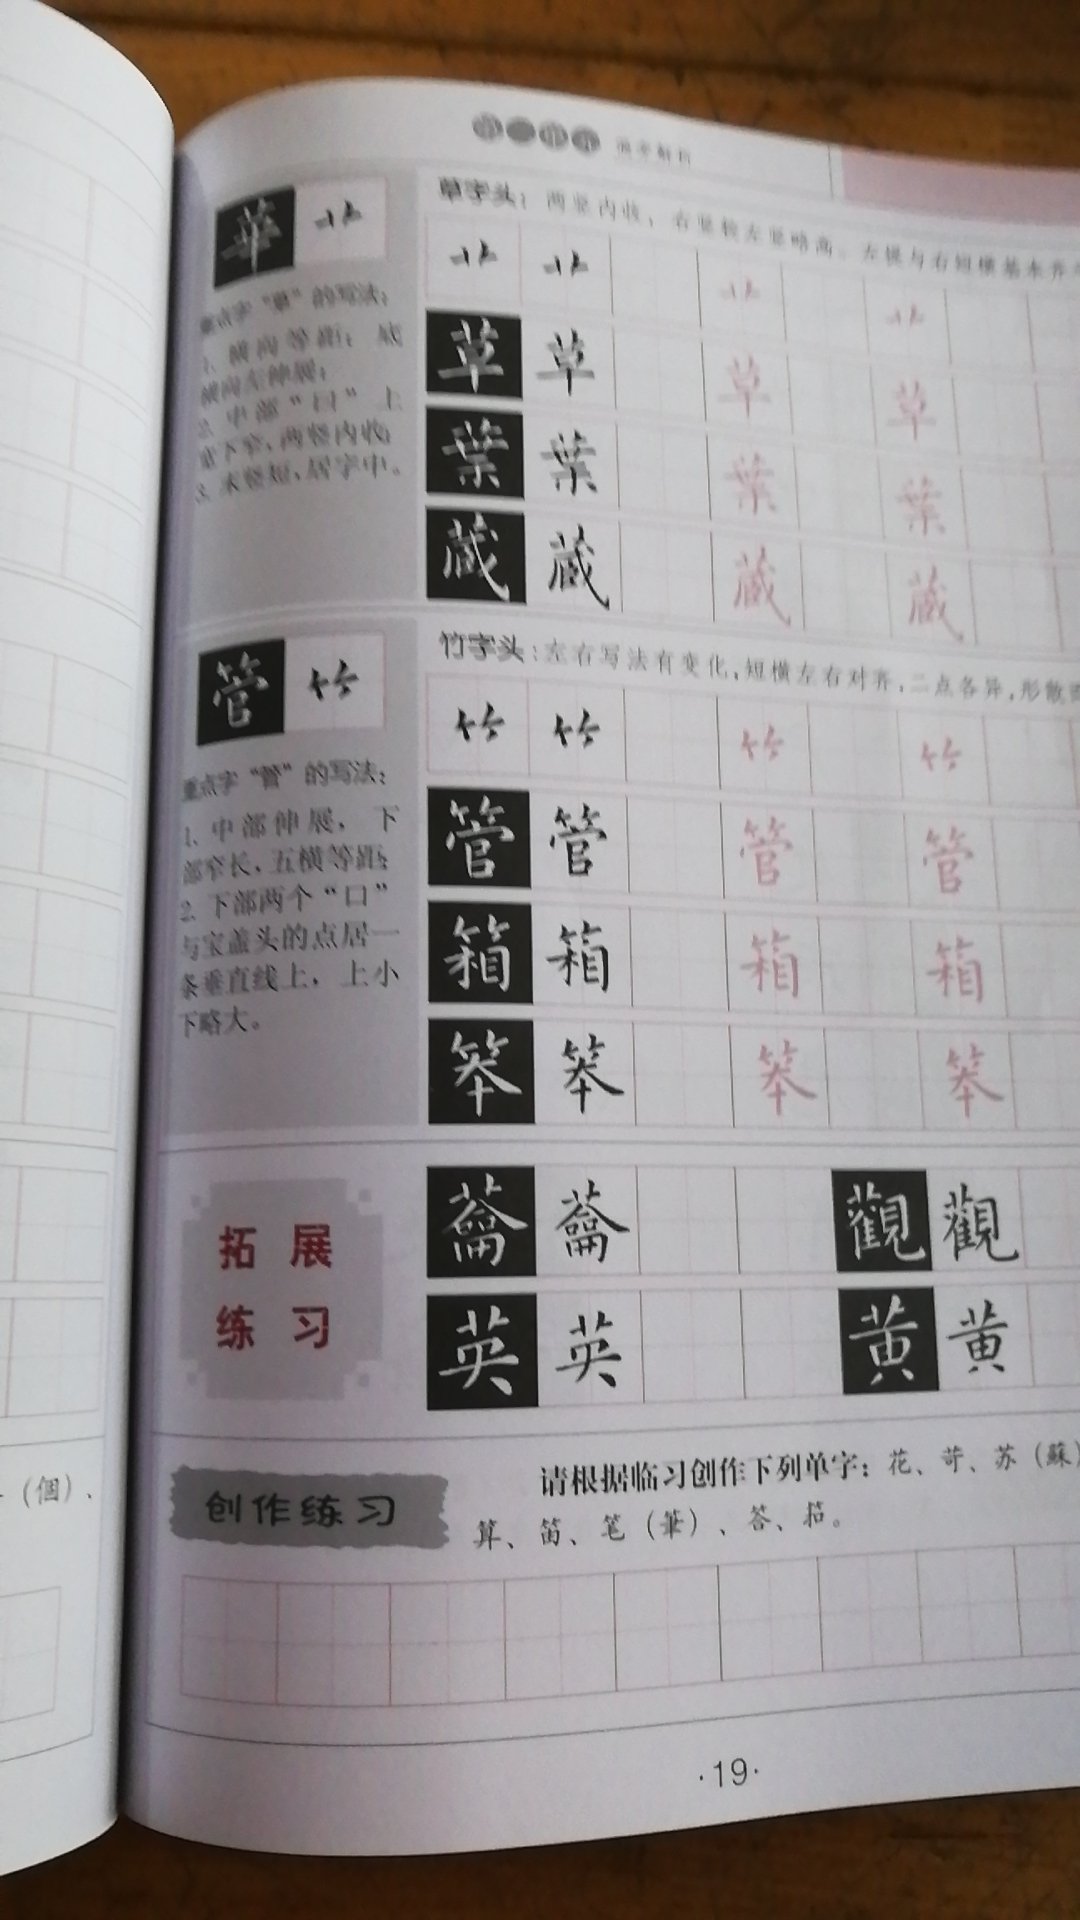 草字头：两竖内收，右竖较左竖略高。左提与右短横基本齐
草 草 草 草
葉 葉 葉 葉
蔵 蔵 蔵 蔵
的写法：
1. 横向等距；底
横向左伸展；
2. 中部“口”上
宽下窄，两竖内收；
3. 末竖短，居字中。
竹字头：左右写法有变化，短横左右对齐，二点各异，形散
管
管 管 管 管
箱 箱 箱 箱
笨 笨 笨 笨
重点字“管”的写法：
1. 中部伸展，下
部窄长，五横等距；
2. 下部两个“口”
与宝盖头的点居一
条垂直线上，上小
下略大。
拓展
练习
觀 觀
英 英 黄 黄
创作练习
请根据临习创作下列单字：花、苛、苏（蘇）
算、笛、笔（筆）、答、
（個）、
·19·